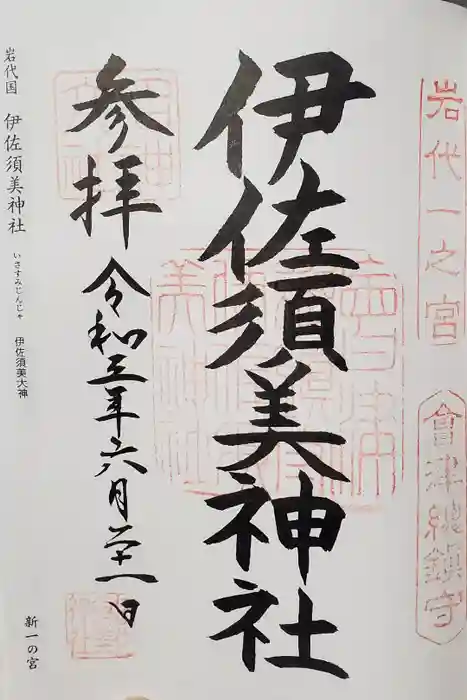 岩代一之宮
會津總鎮守
伊佐須美神社
参拝
令和三年六月二十一日
岩代国 伊佐須美神社 いさすみじんじゃ 伊佐須美大神
新一の宮